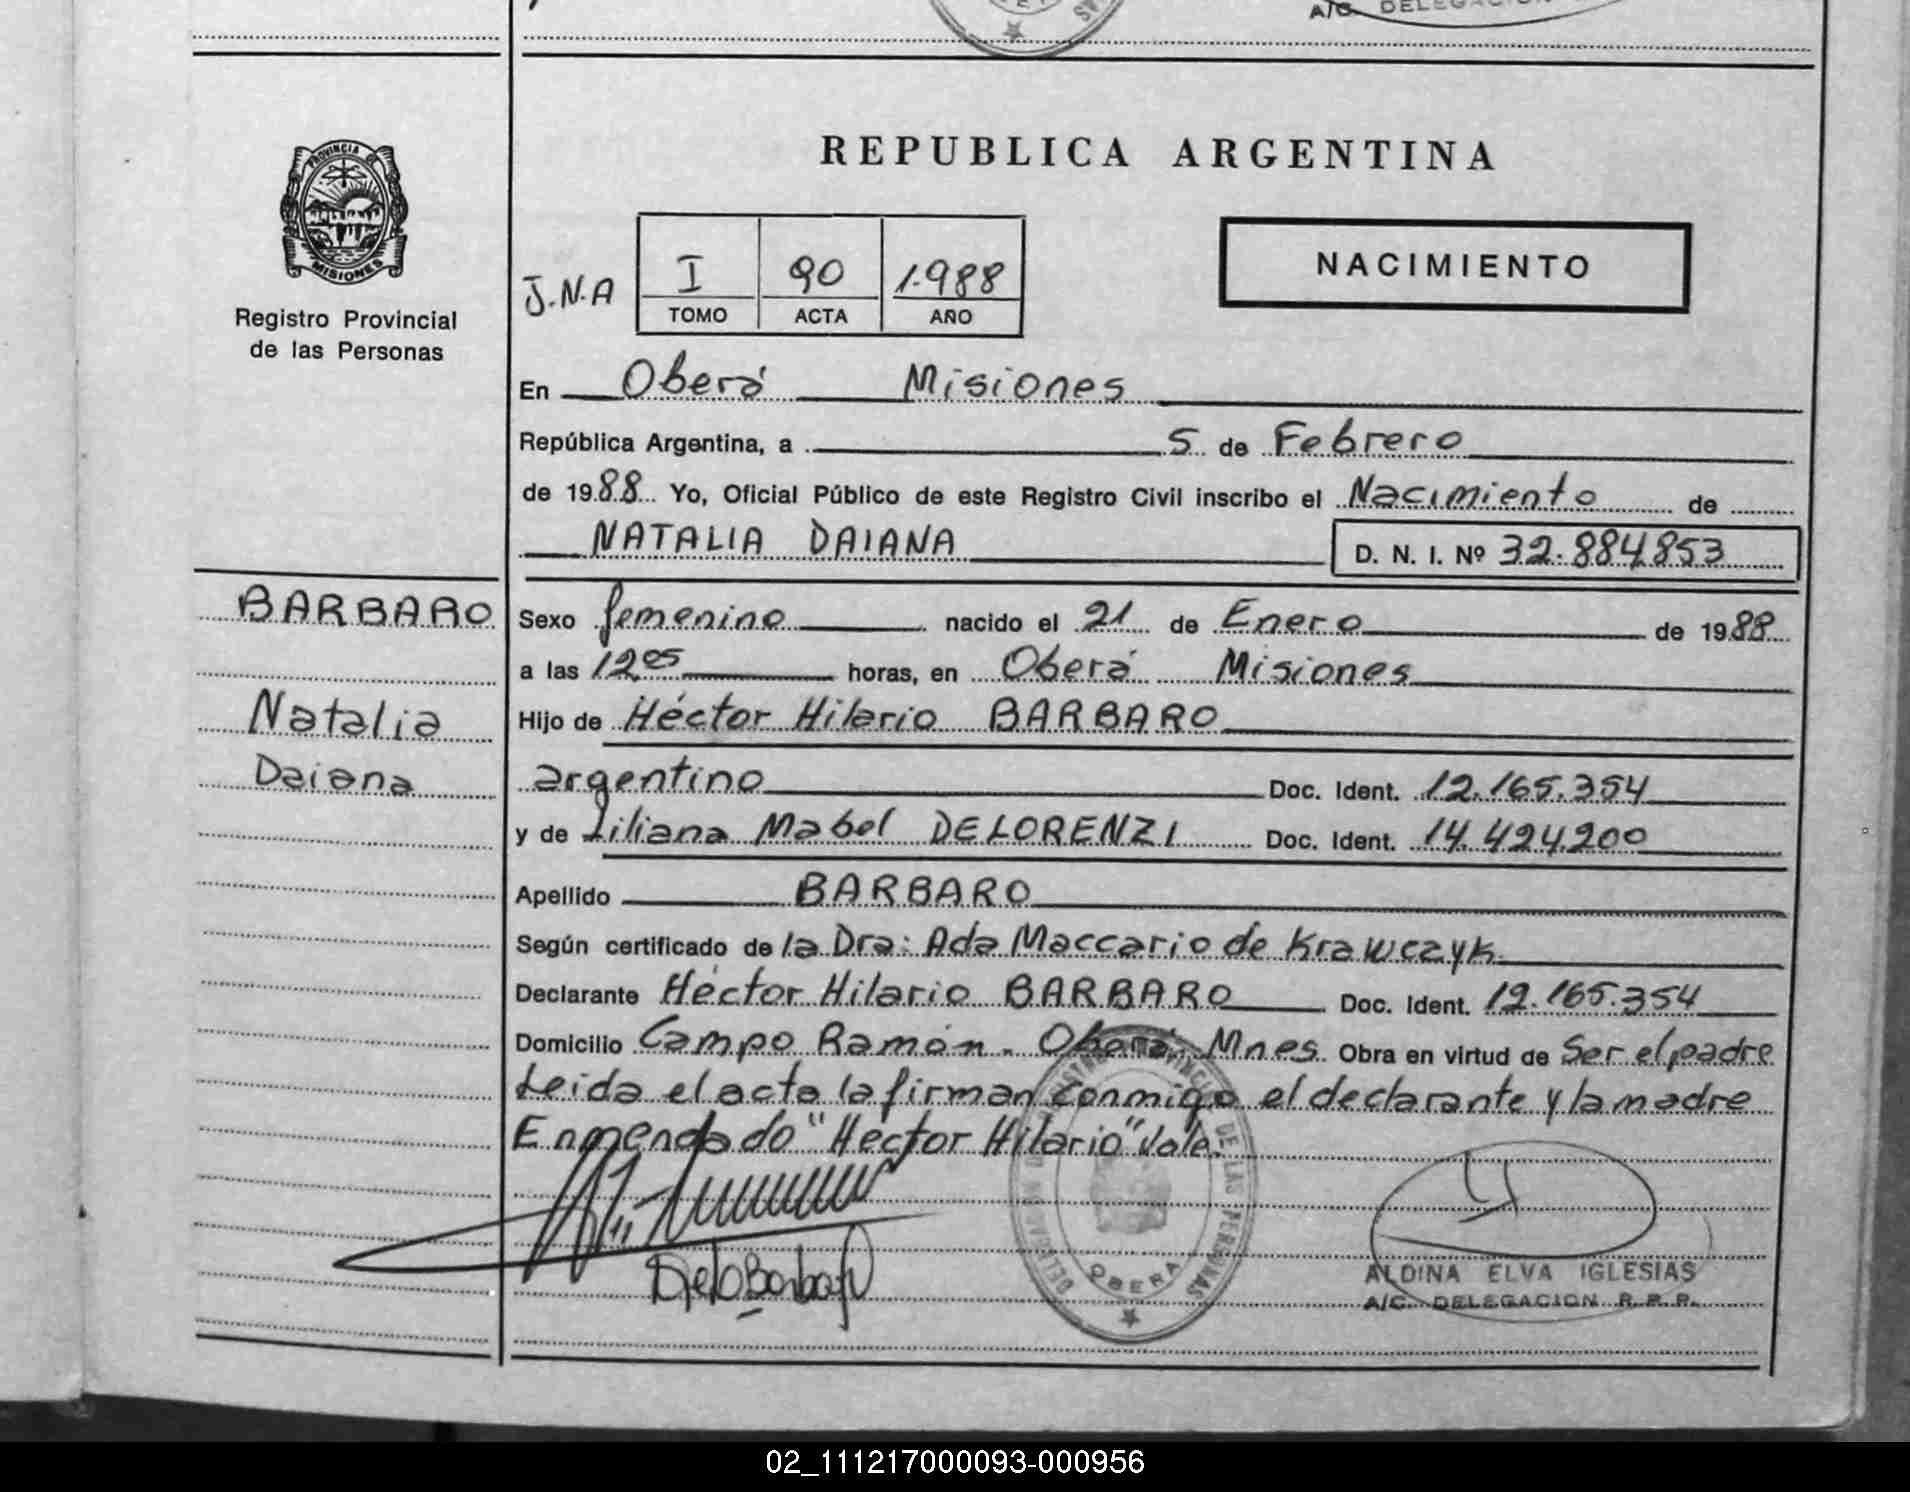 A/C. DELEGACION
REPUBLICA ARGENTINA
PROVINCIA DE
MISIONES
Registro Provincial
de las Personas
J.N.A
I 90 1.988
TOMO ACTA AÑO
NACIMIENTO
En Oberá Misiones
República Argentina, a 5 de Febrero
de 1988 Yo, Oficial Público de este Registro Civil inscribo el Nacimiento de
NATALIA DAIANA D. N. I. Nº 32.884.853
BARBARO
Natalia
Daiana
Sexo femenino nacido el 21 de Enero de 1988
a las 12 05 horas, en Oberá Misiones
Hijo de Héctor Hilario BARBARO
argentino Doc. Ident. 12.165.354
y de Liliana Mabel DELORENZI Doc. Ident. 14.424.200
Apellido BARBARO
Según certificado de la Dra: Ada Maccario de Krawczyk
Declarante Héctor Hilario BARBARO Doc. Ident. 12.165.354
Domicilio Campo Ramón. Oberá, Mnes Obra en virtud de Ser el padre
Leida el acta la firman conmigo el declarante y la madre
Enmendado "Hector Hilario" Vale.
DE LAS PERSONAS
OBERA
ALDINA ELVA IGLESIAS
A/C. DELEGACION R.P.P.
02_111217000093-000956